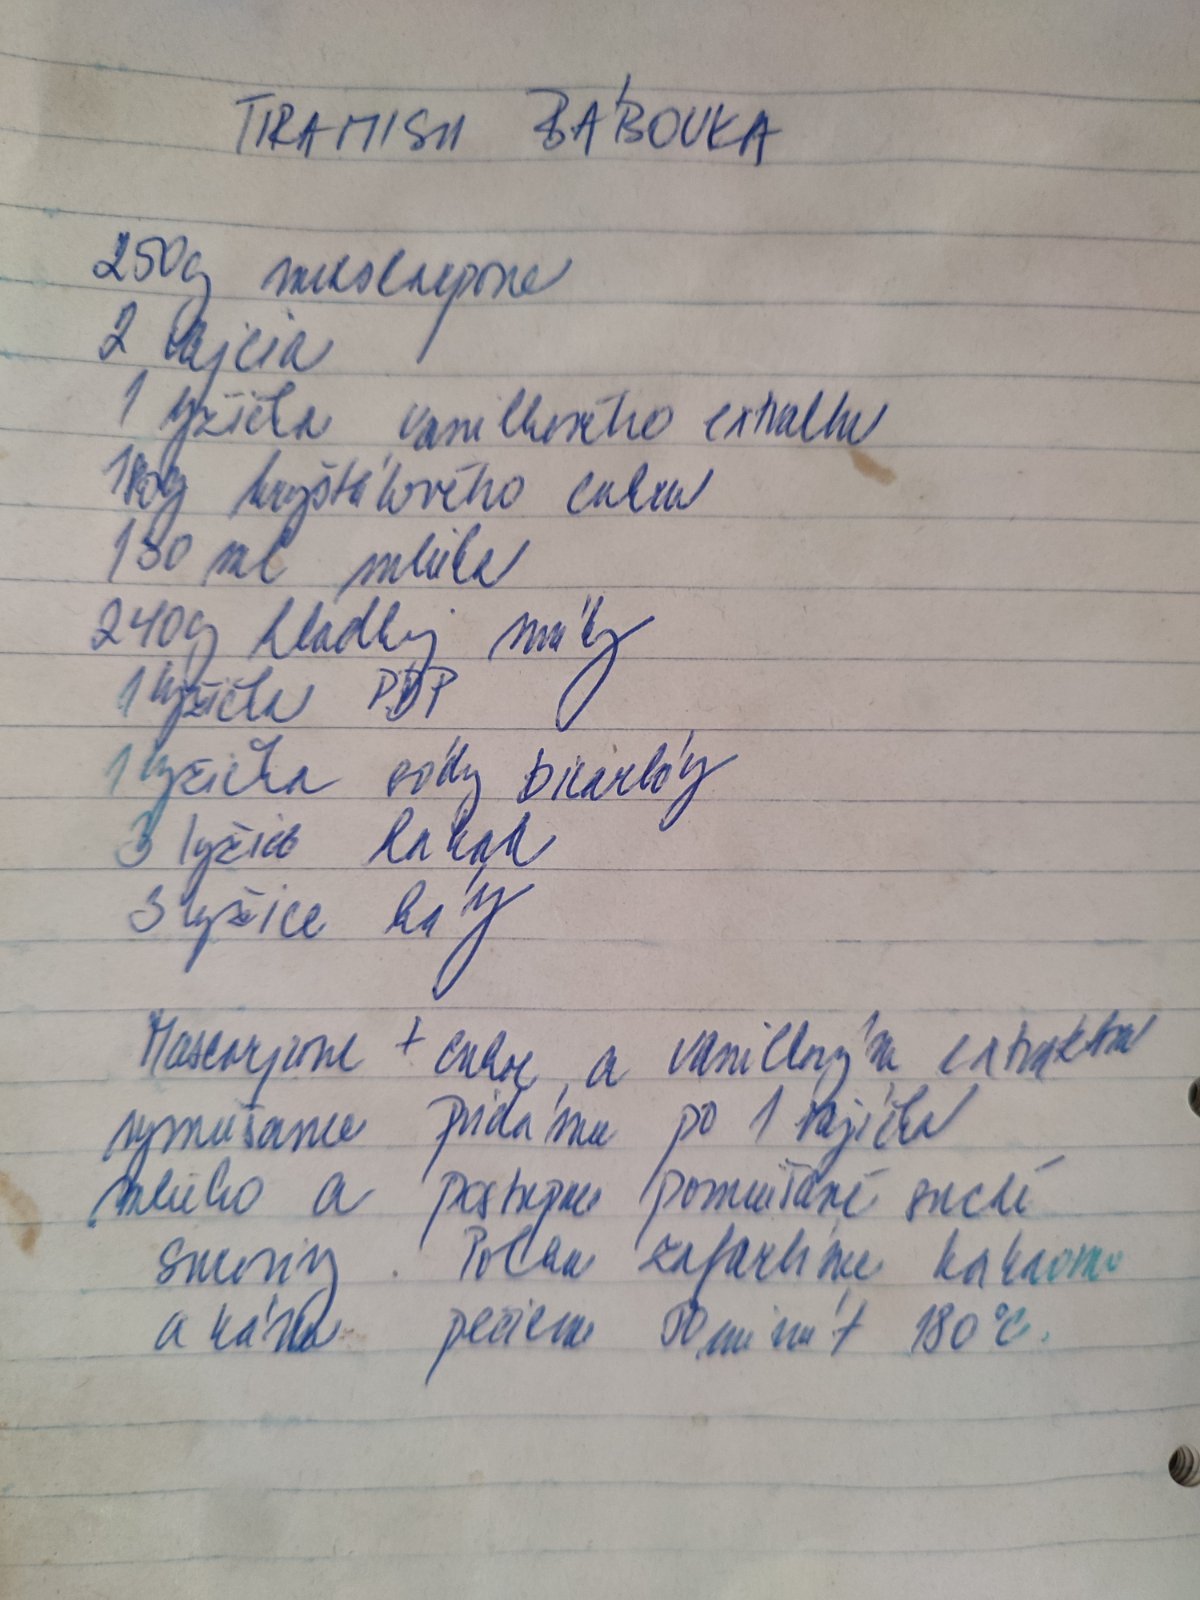 TIRAMISU BÁBOVKA
250g mascarpone
2 vajcia
1 lyžička vanilkového extraktu
180g kryštálového cukru
130 ml mlieka
240g hladkej múky
1 lyžička PDP
1 lyžička sódy bicarbóny
3 lyžice kakaa
3 lyžice kávy
Mascarpone + cukor a vanilkovým extraktom
vymiešame pridáme po 1 vajíčku
mlieko a postupne pomiešané suché
suroviny. Polku zafarbíme kakaom
a kávou pečieme 50 minút 180°C.